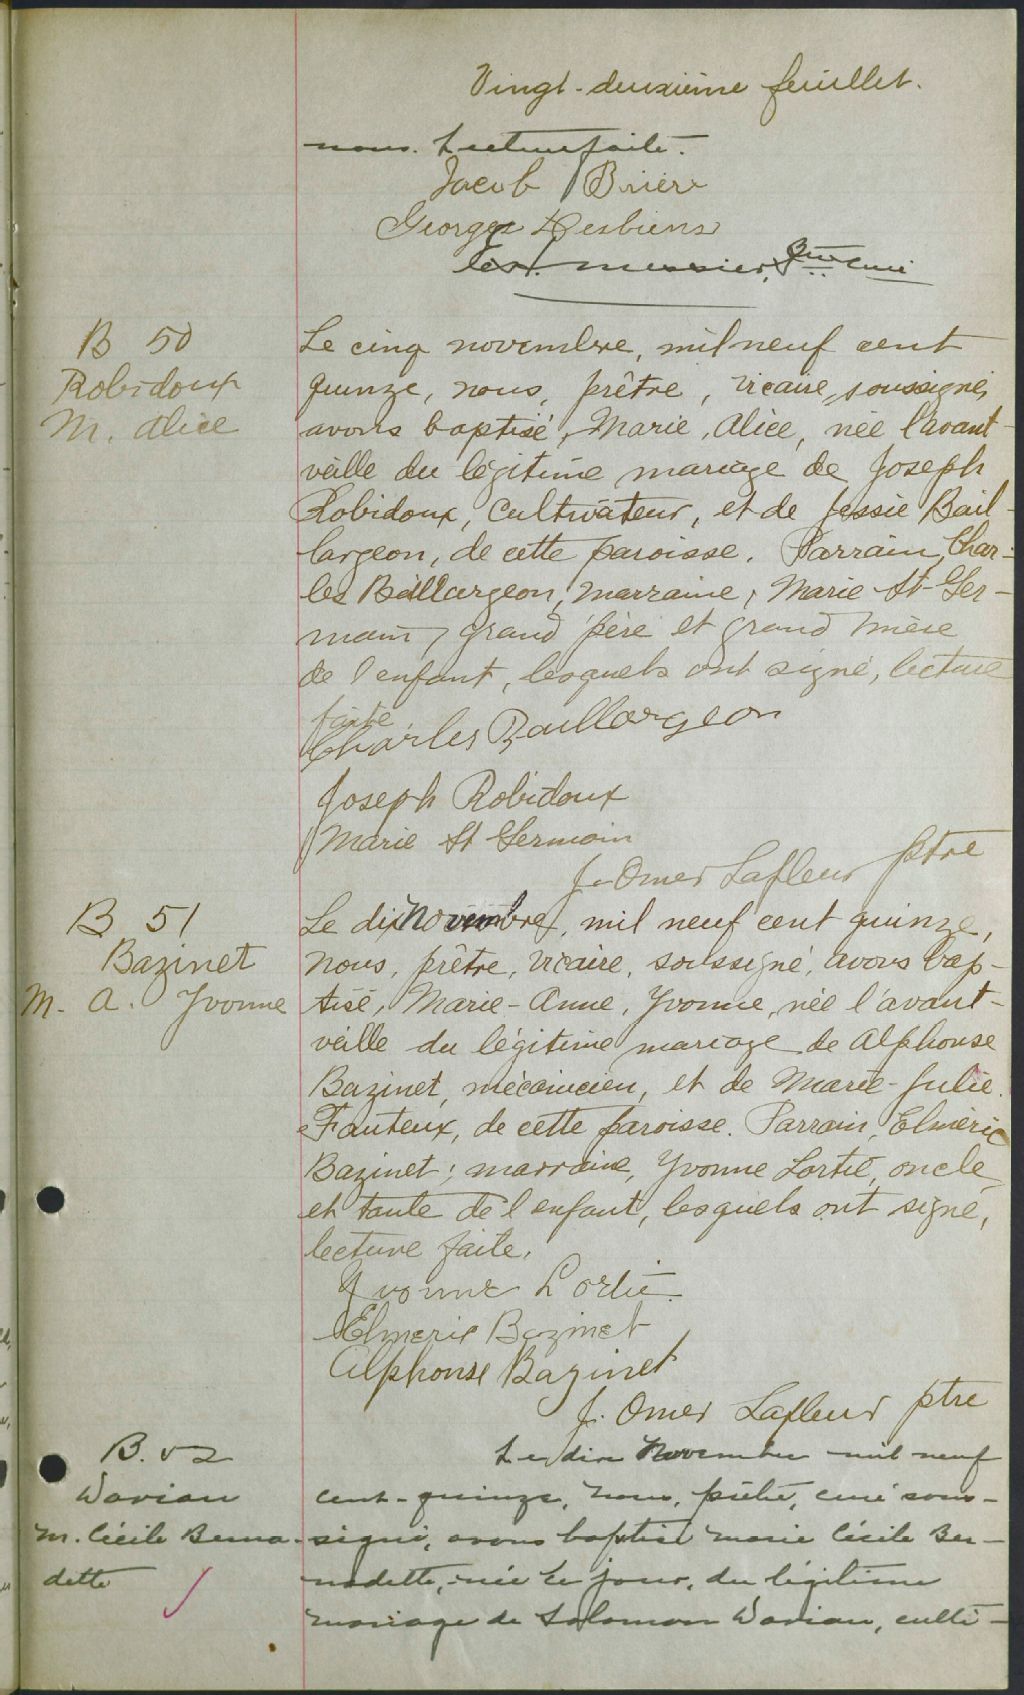 Vingt-deuxième feuillet.
nous. Lecture faite.
Jacob Brière
Georges Desbiens
messier, ptre curé
B 50
Robidoux
M. Alice
Le cinq novembre, mil neuf cent
quinze, nous, prêtre, vicaire, soussigné,
avons baptisé, Marie, Alice, née l'avant-
veille du légitime mariage de Joseph
Robidoux, cultivateur, et de Jessie Bail-
largeon, de cette paroisse. Parrain, Char-
les Baillargeon, marraine, Marie St-Ger-
main, grand père et grand mère
de l'enfant, lesquels ont signé, lecture
faite.
Charles Baillargeon
Joseph Robidoux
Marie St Germain
J. Omer Lafleur ptre
B 51
Bazinet
M. A. Yvonne
Le dix Novembre, mil neuf cent quinze,
nous, prêtre, vicaire, soussigné, avons bap-
tisé, Marie-Anne, Yvonne, née l'avant-
veille du légitime mariage de Alphonse
Bazinet, mécanicien, et de Marie-Julie
Fauteux, de cette paroisse. Parrain, Elméric
Bazinet; marraine, Yvonne Lortie, oncle
et tante de l'enfant, lesquels ont signé,
lecture faite.
Yvonne Lortie
Elmeric Bazinet
Alphonse Bazinet
J. Omer Lafleur ptre
B. 52
Davian
M. Cécile Berna-
dette
Le dix Novembre mil neuf
cent-quinze, nous, prêtre, curé sous-
signé, avons baptisé Marie Cécile Ber-
nadette, née ce jour, du légitime
mariage de Salomon Davian, culti-